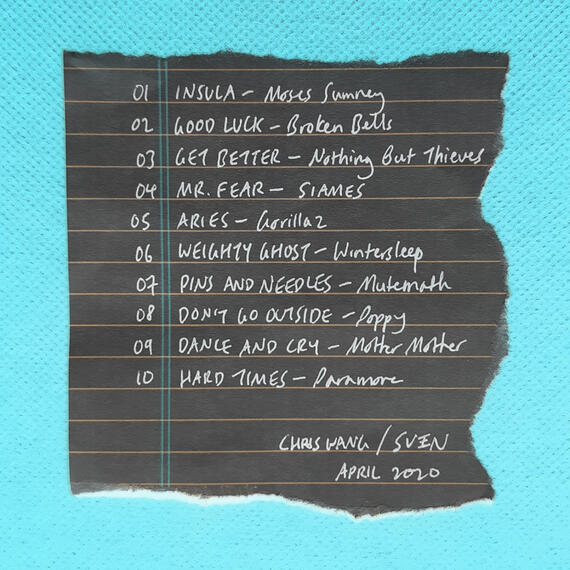 01 INSULA – Moses Sumney
02 GOOD LUCK – Broken Bells
03 GET BETTER – Nothing But Thieves
04 MR. FEAR – SIAMES
05 ARIES – Gorillaz
06 WEIGHTY GHOST – Wintersleep
07 PINS AND NEEDLES – Mutemath
08 DON'T GO OUTSIDE – Poppy
09 DANCE AND CRY – Mother Mother
10 HARD TIMES – Paramore
CHRIS WANG / SVEN
APRIL 2020